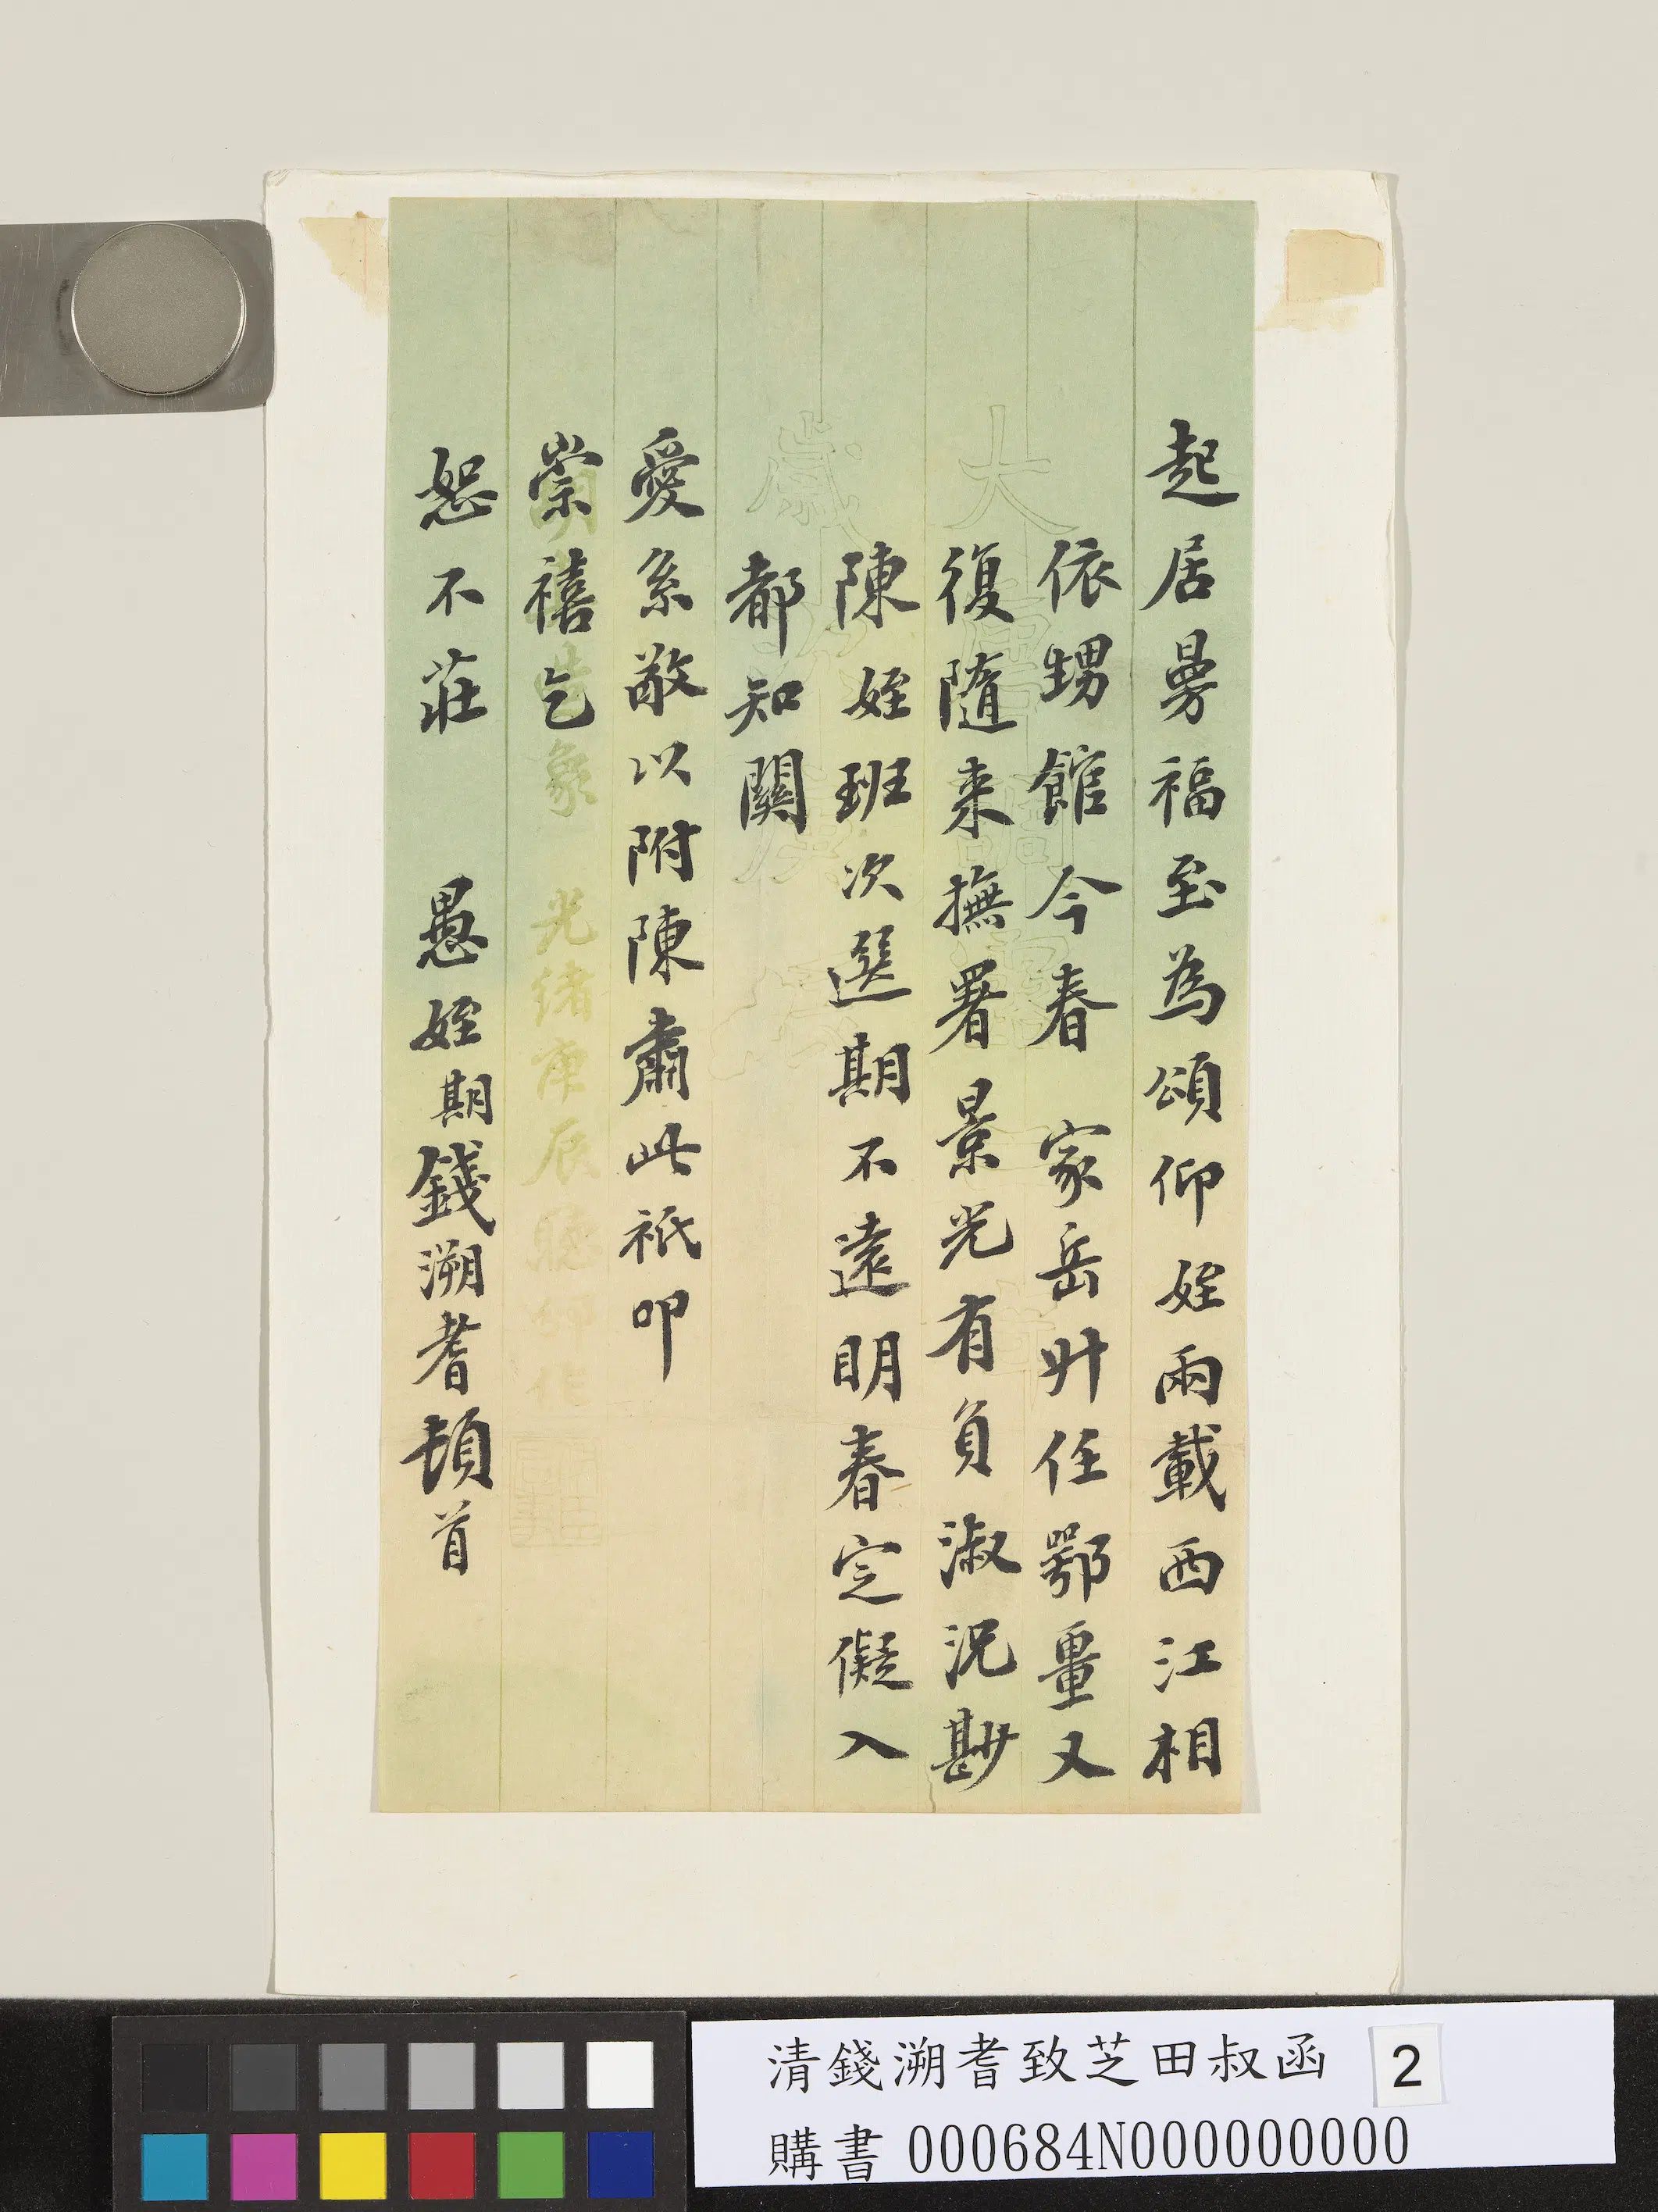 起居曼福至為頌仰姪兩載西江相
依甥館今春家岳升任鄂畺又
復隨來撫署景光有負淑況尠
陳姪班次選期不遠明春定儗入
都知關
愛系敬以附陳肅此祇叩
崇禧乞
恕不莊
愚姪期錢溯耆頓首
光緒庚辰
清錢溯耆致芝田叔函 2
購書 000684N000000000